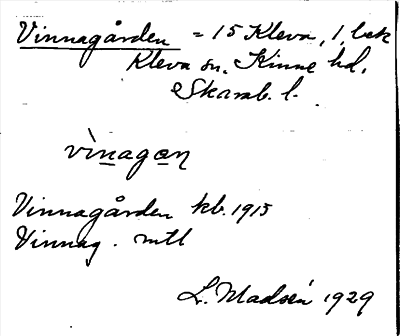 Vinnagården = 15 Kleva, 1, bek
Kleva sn. Kinne hd.
Skarab. l.
vìnagan
Vinnagården kb. 1915
Vinnag. mtl
L. Madsén 1929